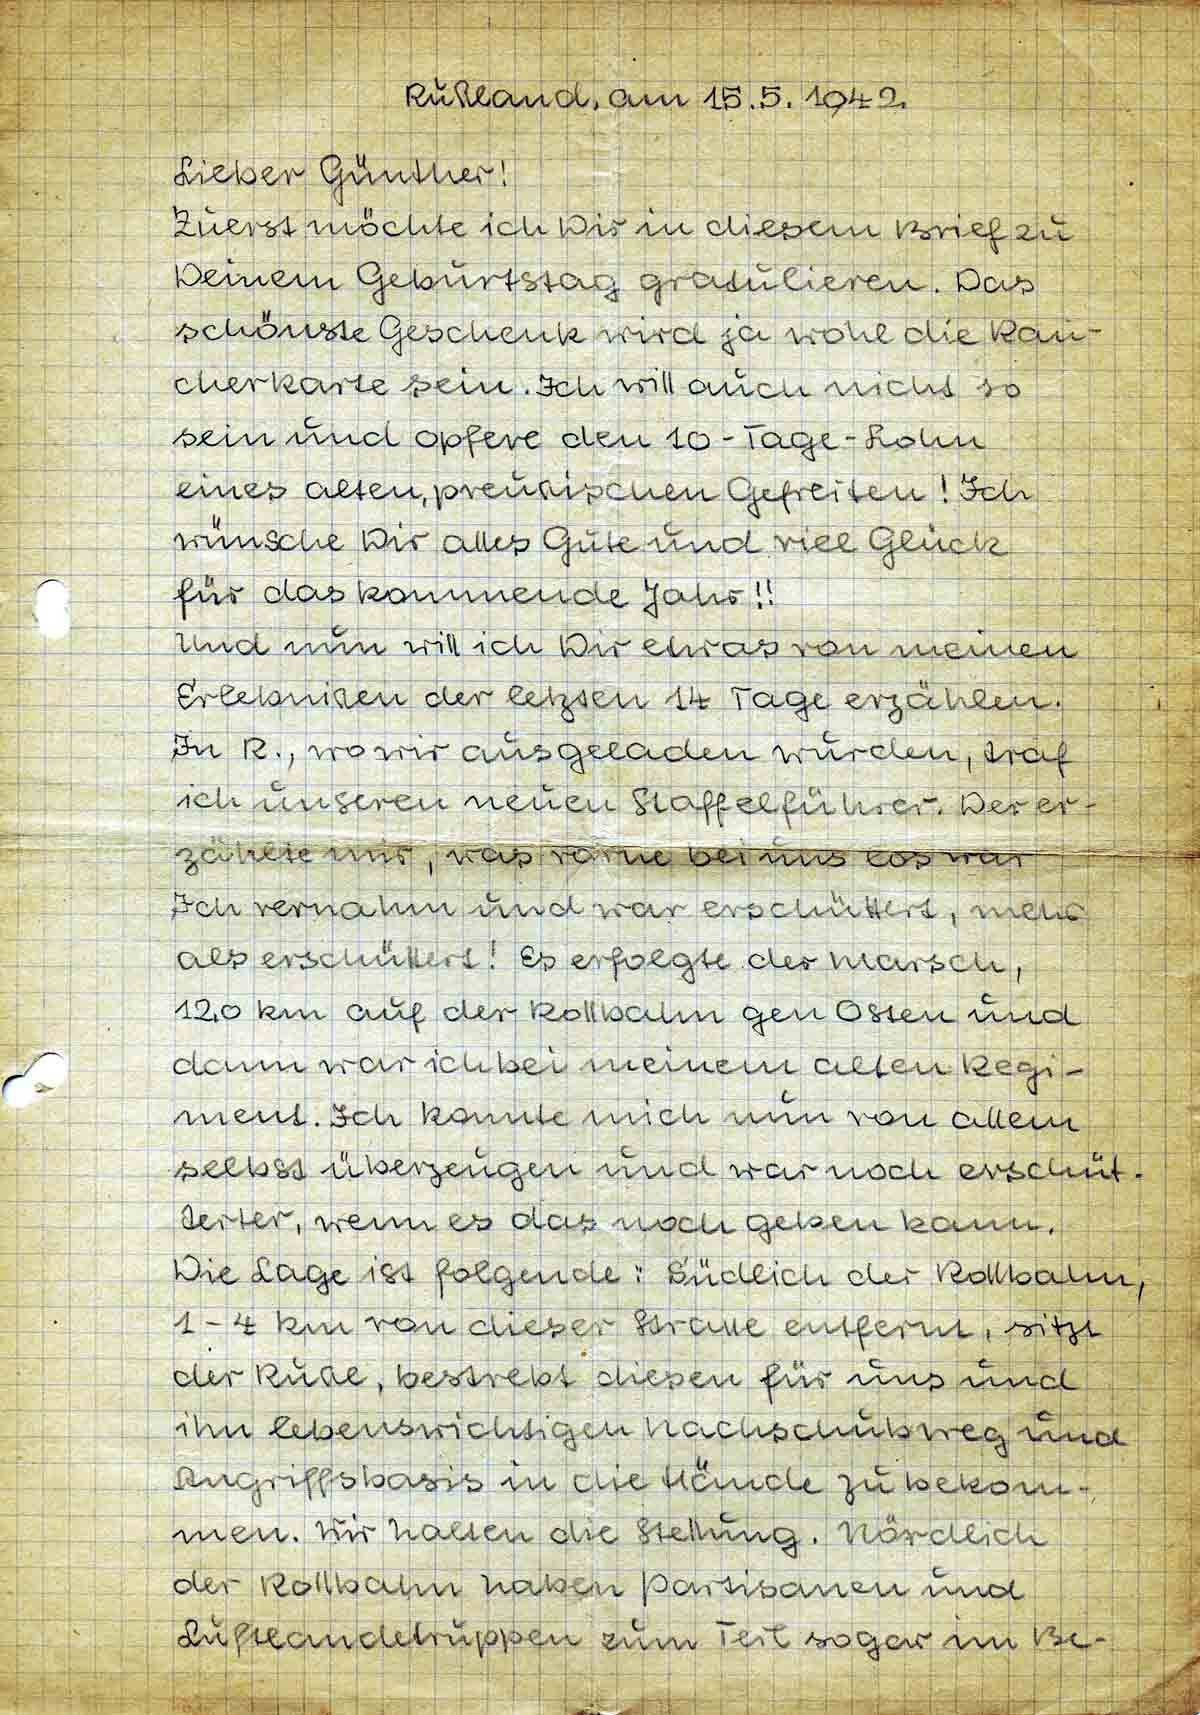 Rußland, am 15.5.1942.
Lieber Günther!
Zuerst möchte ich Dir in diesem Brief zu
Deinem Geburtstag gratulieren. Das
schönste Geschenk wird ja wohl die Rau-
cherkarte sein. Ich will auch nicht so
sein und opfere den 10-Tage-Lohn
eines alten, preußischen Gefreiten! Ich
wünsche Dir alles Gute und viel Glück
für das kommende Jahr!!
Und nun will ich Dir etwas von meinen
Erlebnißen der letzten 14 Tage erzählen.
In R., wo wir ausgeladen wurden, traf
ich unseren neuen Staffelführer. Der er-
zählte mir, was vorne bei uns los war
Ich vernahm und war erschüttert, mehr
als erschüttert! Es erfolgte der Marsch,
120 km auf der Rollbahn gen Osten und
dann war ich bei meinem alten Regi-
ment. Ich konnte mich nun von allem
selbst überzeugen und war noch erschüt-
terter, wenn es das noch geben kann.
Die Lage ist folgende: Südlich der Rollbahn,
1-4 km von dieser Straße entfernt, sitzt
der Ruße, bestrebt diesen für uns und
ihn lebenswichtigen Nachschubweg und
Angriffsbasis in die Hände zu bekom-
men. Wir halten die Stellung. Nördlich
der Rollbahn haben Partisanen und
Luftlandetruppen zum Teil sogar im Be-